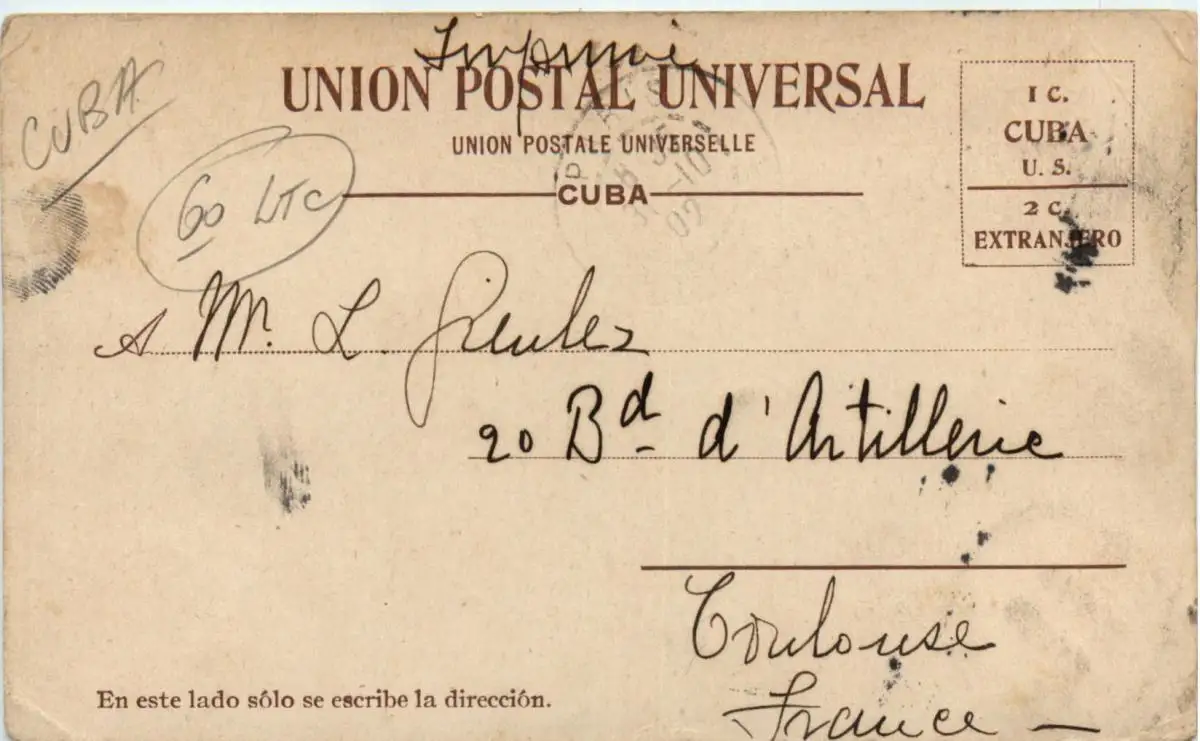 Imprimé
UNION POSTAL UNIVERSAL
UNION POSTALE UNIVERSELLE
CUBA
CUBA
60 LTC
1 C.
CUBA
U. S.
2 C.
EXTRANJERO
A Mr. L.
20 Bd d'Artillerie
Toulouse
France
En este lado sólo se escribe la dirección.